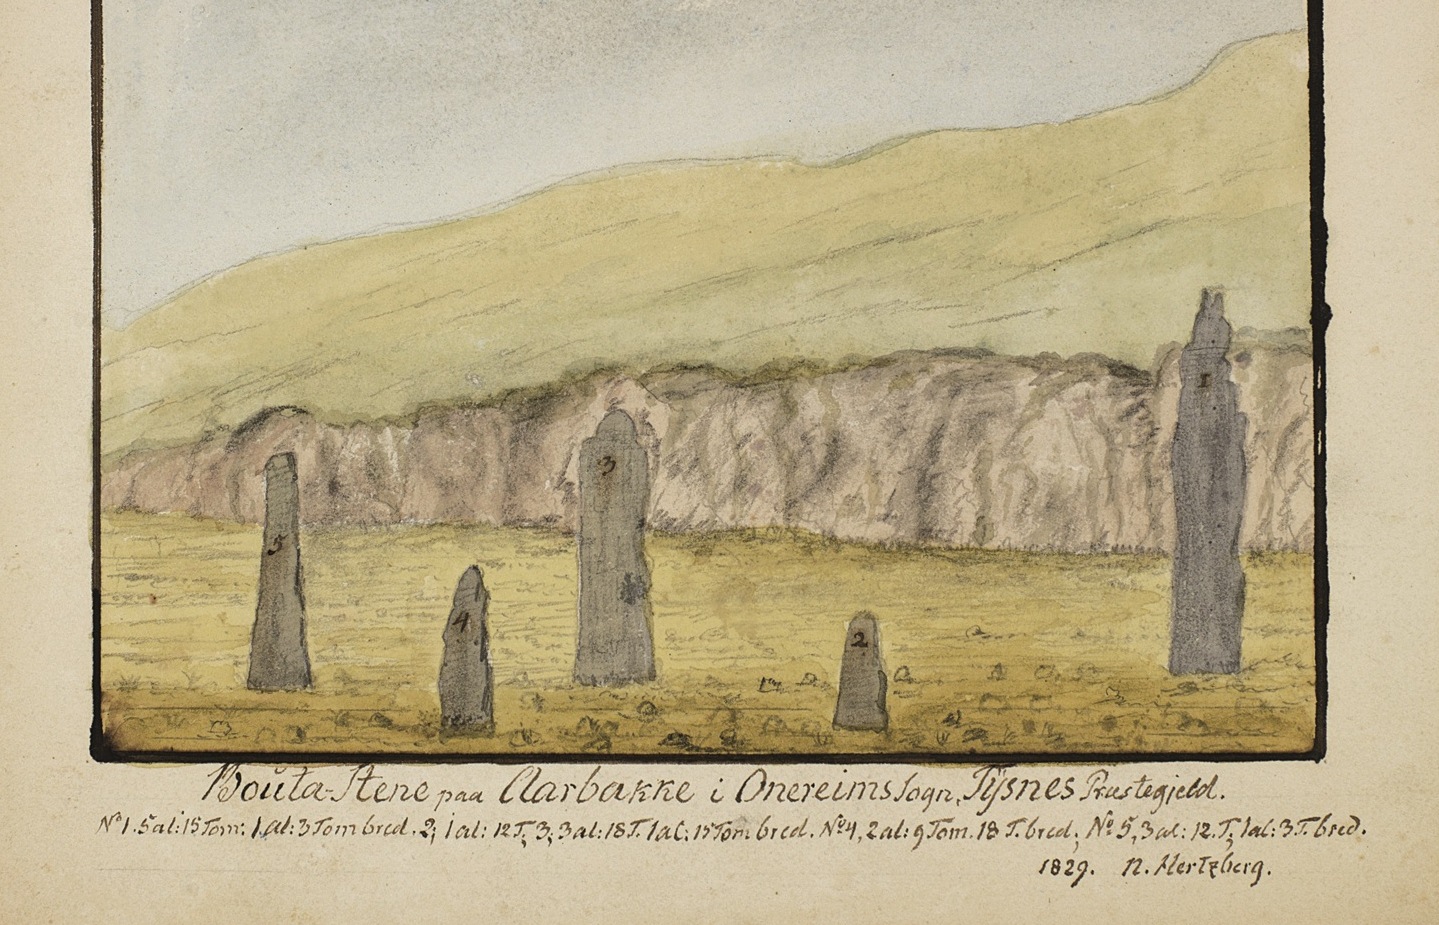 1
3
5
4
2
Bouta-Stene paa Aarbakke i Onereims Sogn, Tÿsnes Præstegjeld.
No 1. 5 al: 15 Tom: 1 al: 3 Tom bred. 2, 1 al: 12 T, 3, 3 al: 18 T. 1 al: 15 Tom. bred. No 4, 2 al: 9 Tom. 18 T. bred, No 5, 3 al: 12. T, 1 al: 3 T. bred.
1829. N. Hertzberg.